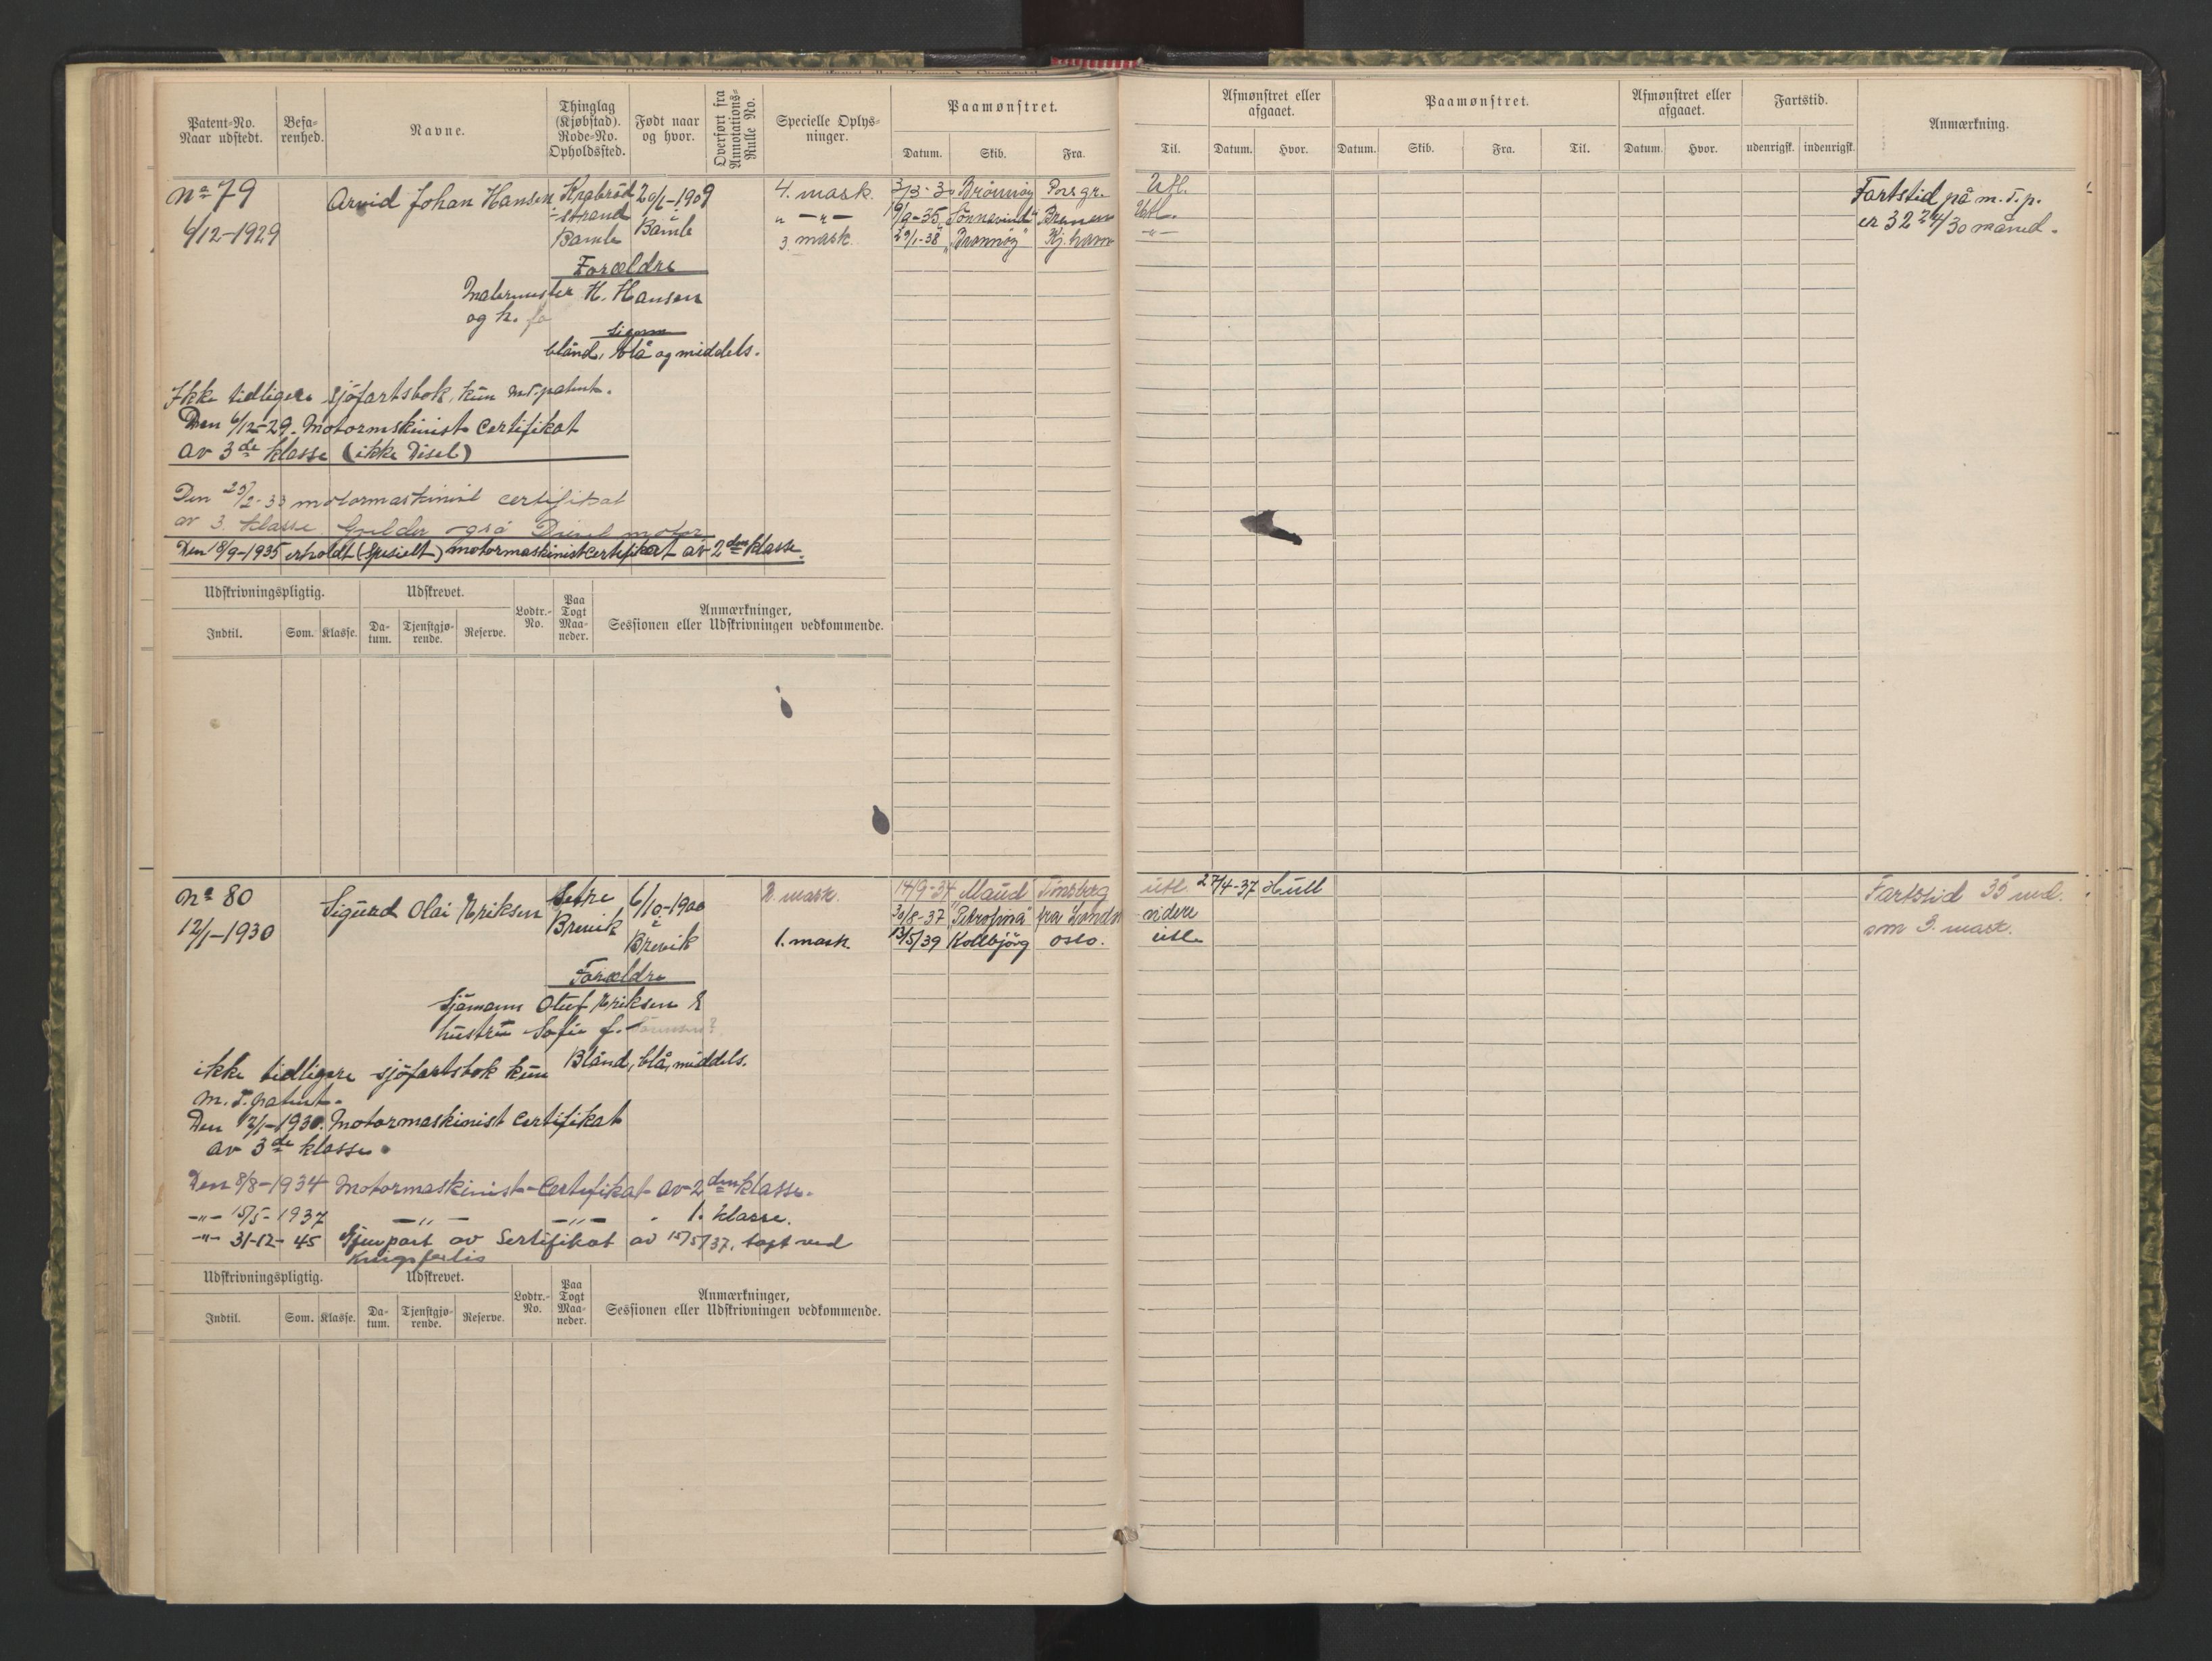 Patent-No. Naar udstedt.
Befa-renhed.
Navne.
Thinglag (Kjøbstad). Rode-No. Opholdssted.
Født naar og hvor.
Overført fra Annotations-Rulle No.
Specielle Oplys-ninger.
Paamønstret.
Datum. Skib. Fra. Til.
Afmønstret eller afgaaet.
Datum. Hvor.
Paamønstret.
Datum. Skib. Fra. Til.
Afmønstret eller afgaaet.
Datum. Hvor.
Fartstid.
udenrigsk. indenrigsk.
Anmærkning.
No 79 Arvid Johan Hansen Krabbrød 20/1-1909 4. mask. 3/3-30 Brönnöy Porsgr. Utl. Fartstid på m.T.p.
6/12-1929 strand i Bamle 19/9-35 "Sönnavind" Utl. er 32 24/30 måned.
Bamle 3. mask. 29/1-38 "Brönnöy" Kj. havn -"-
Forældre
Malermester H. Hansen
og h. fø
Signm
blånd, blå og middels.
Ikke tidligere sjöfartsbok, kun M.T.patent.
Den 6/12-29. Motormskinist Certifikat
av 3de klasse (ikke Disel)
Den 25/2-33 motormaskinist certifikat
av 3. klasse Gjelder også Diesel motor
Den 18/9-1935 erholdt (Spesielt) motormaskinistcertifikat av 2den klasse.
Udskrivningspligtig. Udskrevet. Lodtr.-No. Paa Togt Maa-neder. Anmærkninger, Sessionen eller Udskrivningen vedkommende.
Indtil. Som. Klasse. Da-tum. Tjenstgjø-rende. Reserve.
No 80 Sigurd Olai Eriksen Setre 6/10-1900 2. mask. 14/9-34 "Maud" Tönsberg utl 27/4-37 Hull Fartstid 35 md.
12/1-1930 Brevik i 30/8-37 "Petrofina" fra London videre som 3. mask.
Brevik 1. mask. 13/5/39 Kollbjörg Oslo. utl.
Forældre
Sjömann Oluf Eriksen &
hustru Sofie f.
Blånd, blå, middels.
ikke tidligere sjöfartsbok kun
M.T.patent.
Den 12/1-1930. Motormaskinist Certifikat
av 3de klasse.
Den 8/8-1934 Motormaskinist-Certifikat av 2den klasse.
-"- 15/5-1937 -"- -"- 1. klasse.
-"- 31-12-45 Gjenpart av Sertifikat av 15/5/37. tapt ved
krigsforlis
Udskrivningspligtig. Udskrevet. Lodtr.-No. Paa Togt Maa-neder. Anmærkninger, Sessionen eller Udskrivningen vedkommende.
Indtil. Som. Klasse. Da-tum. Tjenstgjø-rende. Reserve.